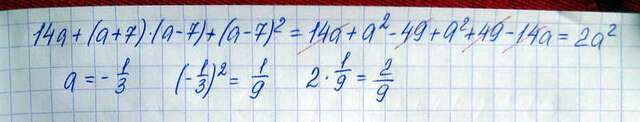 14a+(a+7)·(a-7)+(a-7)²=14a+a²-49+a²+49-14a=2a²
a=-1/3 (-1/3)²=1/9 2·1/9=2/9